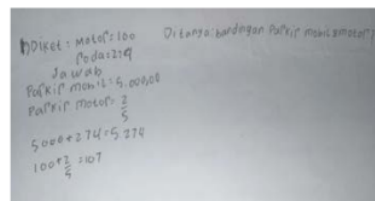 Diket: Motor = 100 Ditanya: bandingan Parkir mobil & motor?
roda = 274
Jawab
Parkir mobil = 5.000,00
Parkir motor = 2/5
5000 + 274 = 5.274
100 + 2/5 = 107